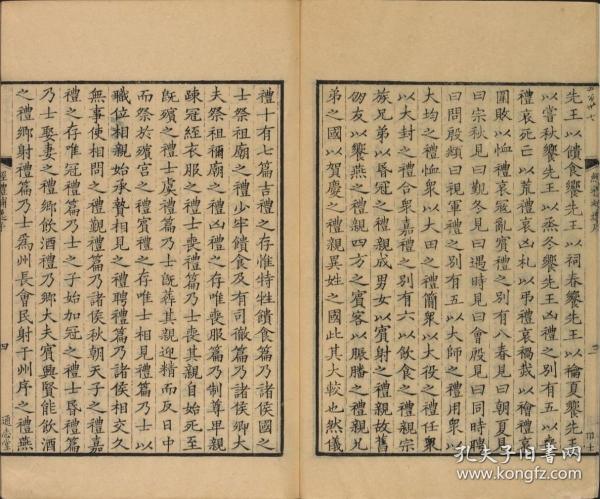 先王以饋食饗先王以祠春饗先王以禴夏饗先王
以嘗秋饗先王以烝冬饗先王凶禮之別有五以喪
禮哀死亡以荒禮哀凶札以弔禮哀禍烖以禬禮哀
圍敗以恤禮哀寇亂賓禮之別有八春見曰朝夏見
曰宗秋見曰覲冬見曰遇時見曰會殷見曰同時聘
曰問殷頫曰視軍禮之別有五以大師之禮用衆以
大均之禮恤衆以大田之禮簡衆以大役之禮任衆
以大封之禮合衆嘉禮之別有六以飲食之禮親宗
族兄弟以昬冠之禮親成男女以賓射之禮親故舊
朋友以饗燕之禮親四方之賓客以脤膰之禮親兄
弟之國以賀慶之禮親異姓之國此其大較也然儀
禮十有七篇吉禮之存惟特牲饋食篇乃諸侯國之
士祭祖廟之禮少牢饋食及有司徹篇乃諸侯卿大
夫祭祖禰廟之禮凶禮之存唯喪服篇乃制尊卑親
疎冠絰衣服之禮士喪禮篇乃士喪其親自始死至
旣殯之禮士虞禮篇乃士旣葬其親迎精而反日中
而祭於殯宮之禮賓禮之存唯士相見禮篇乃士以
職位相親始承贄相見之禮聘禮篇乃諸侯相交久
無事使相問之禮覲禮篇乃諸侯秋朝天子之禮嘉
禮之存唯冠禮篇乃士之子始加冠之禮士昬禮篇
乃士娶妻之禮鄉飲酒禮乃鄉大夫賓興賢能飲酒
之禮鄉射禮篇乃士爲州長會民射于州序之禮燕
四
通志堂
孔夫子旧书网
www.kongfz.com